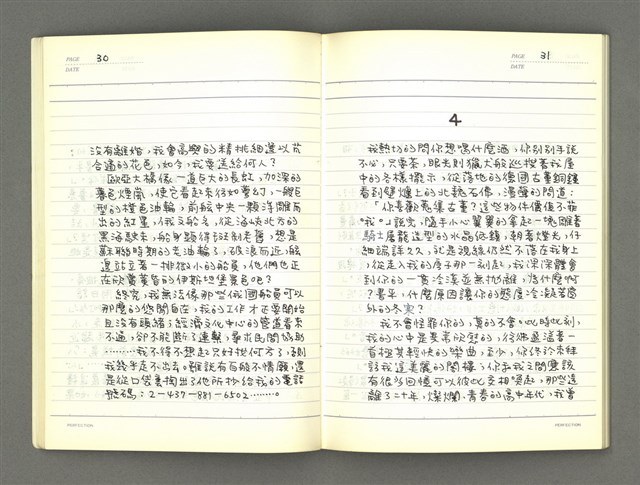 PAGE 30
DATE
沒有離婚，我會高興的精挑細選以符
合適的花色，如今，我要送給何人？
歐亞大橋像一道巨大的長虹，加深的
暮色煙嵐，使它看起來彷如夢幻，一艘巨
型的橙色油輪，前舷中央一顆浮雕而
出的紅星，俄文船名，從海峽北方的
黑海駛來，船身顯得
蘇聯時期的老油輪了，破浪而近，船
邊站立著一排微小的船員，他們也正
在欣賞黃昏的伊斯坦堡景色吧？
終究，我無法像那些俄國船員可以
那麼的悠閒自在，我的工作才正要開始
且沒有頭緒；經濟文化中心的管道看來
不通，卻不能斷了連繫，尋求民間協助
……我不得不想起只好找何方了，否則
我幾乎走不出去。雖說有百般不情願，還
是從口袋裏掏出了他所抄給我的電話
號碼：2-437-881-6502………。
PERFECTION
PAGE 31
DATE
4
我熱切的問你想喝什麼酒，你別別手說
不必，只要茶，眼光則獵犬般巡搜著我屋
中的各樣擺示，從落地的德國古董銅鐘
看到壁爐上的北魏石佛，清醒的問道：
「你喜歡蒐集古董？這些物件價值不菲
哦。」說完，隨手小心翼翼的拿起一塊雕著
騎士屠龍造型的水晶紙鎮，朝著燈光，仔
細端詳久久，就是視線仍然不落在我身上
，從走入我的房子那一刻起，我深深體會
到你的一貫冷漠並無地離，為什麼啊
？書平，什麼原因讓你的態度冷凝若窗
外的冬寒？
我不會怪罪你的，真的不會。此時此刻，
我的心中是異常欣慰的，彷彿盈溢著一
首極其輕快的樂曲，至少，你終於來拜
訪我這美麗的閣樓；你和我之間應該
有很多回憶可以彼此互相喚起，那些遠
離了二十年，燦爛、青春的高中年代，我曾
PERFECTION